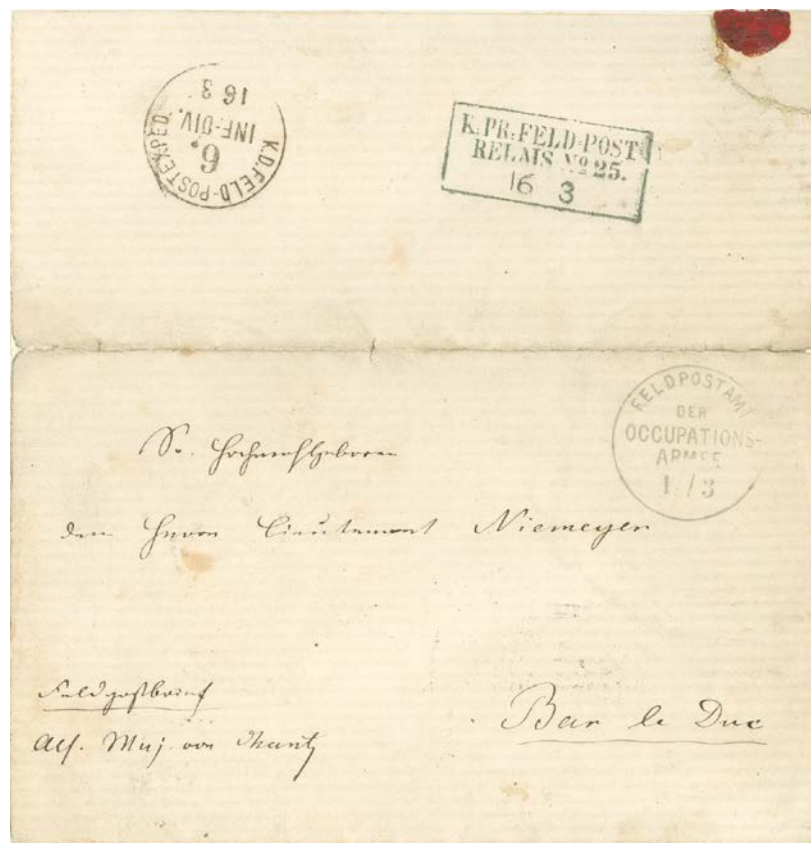 K.D.FELD-POSTEXPED.
6.
INF-DIV.
16 3
K. PR. FELD-POST
RELAIS Nº 25.
16 3
FELDPOSTAMT
DER
OCCUPATIONS-
ARMEE
/3
Sr. Hochwohlgeboren
dem Herrn Lieutenant Niemeyer
Feldpostbrief
Maj. von
Bar le Duc